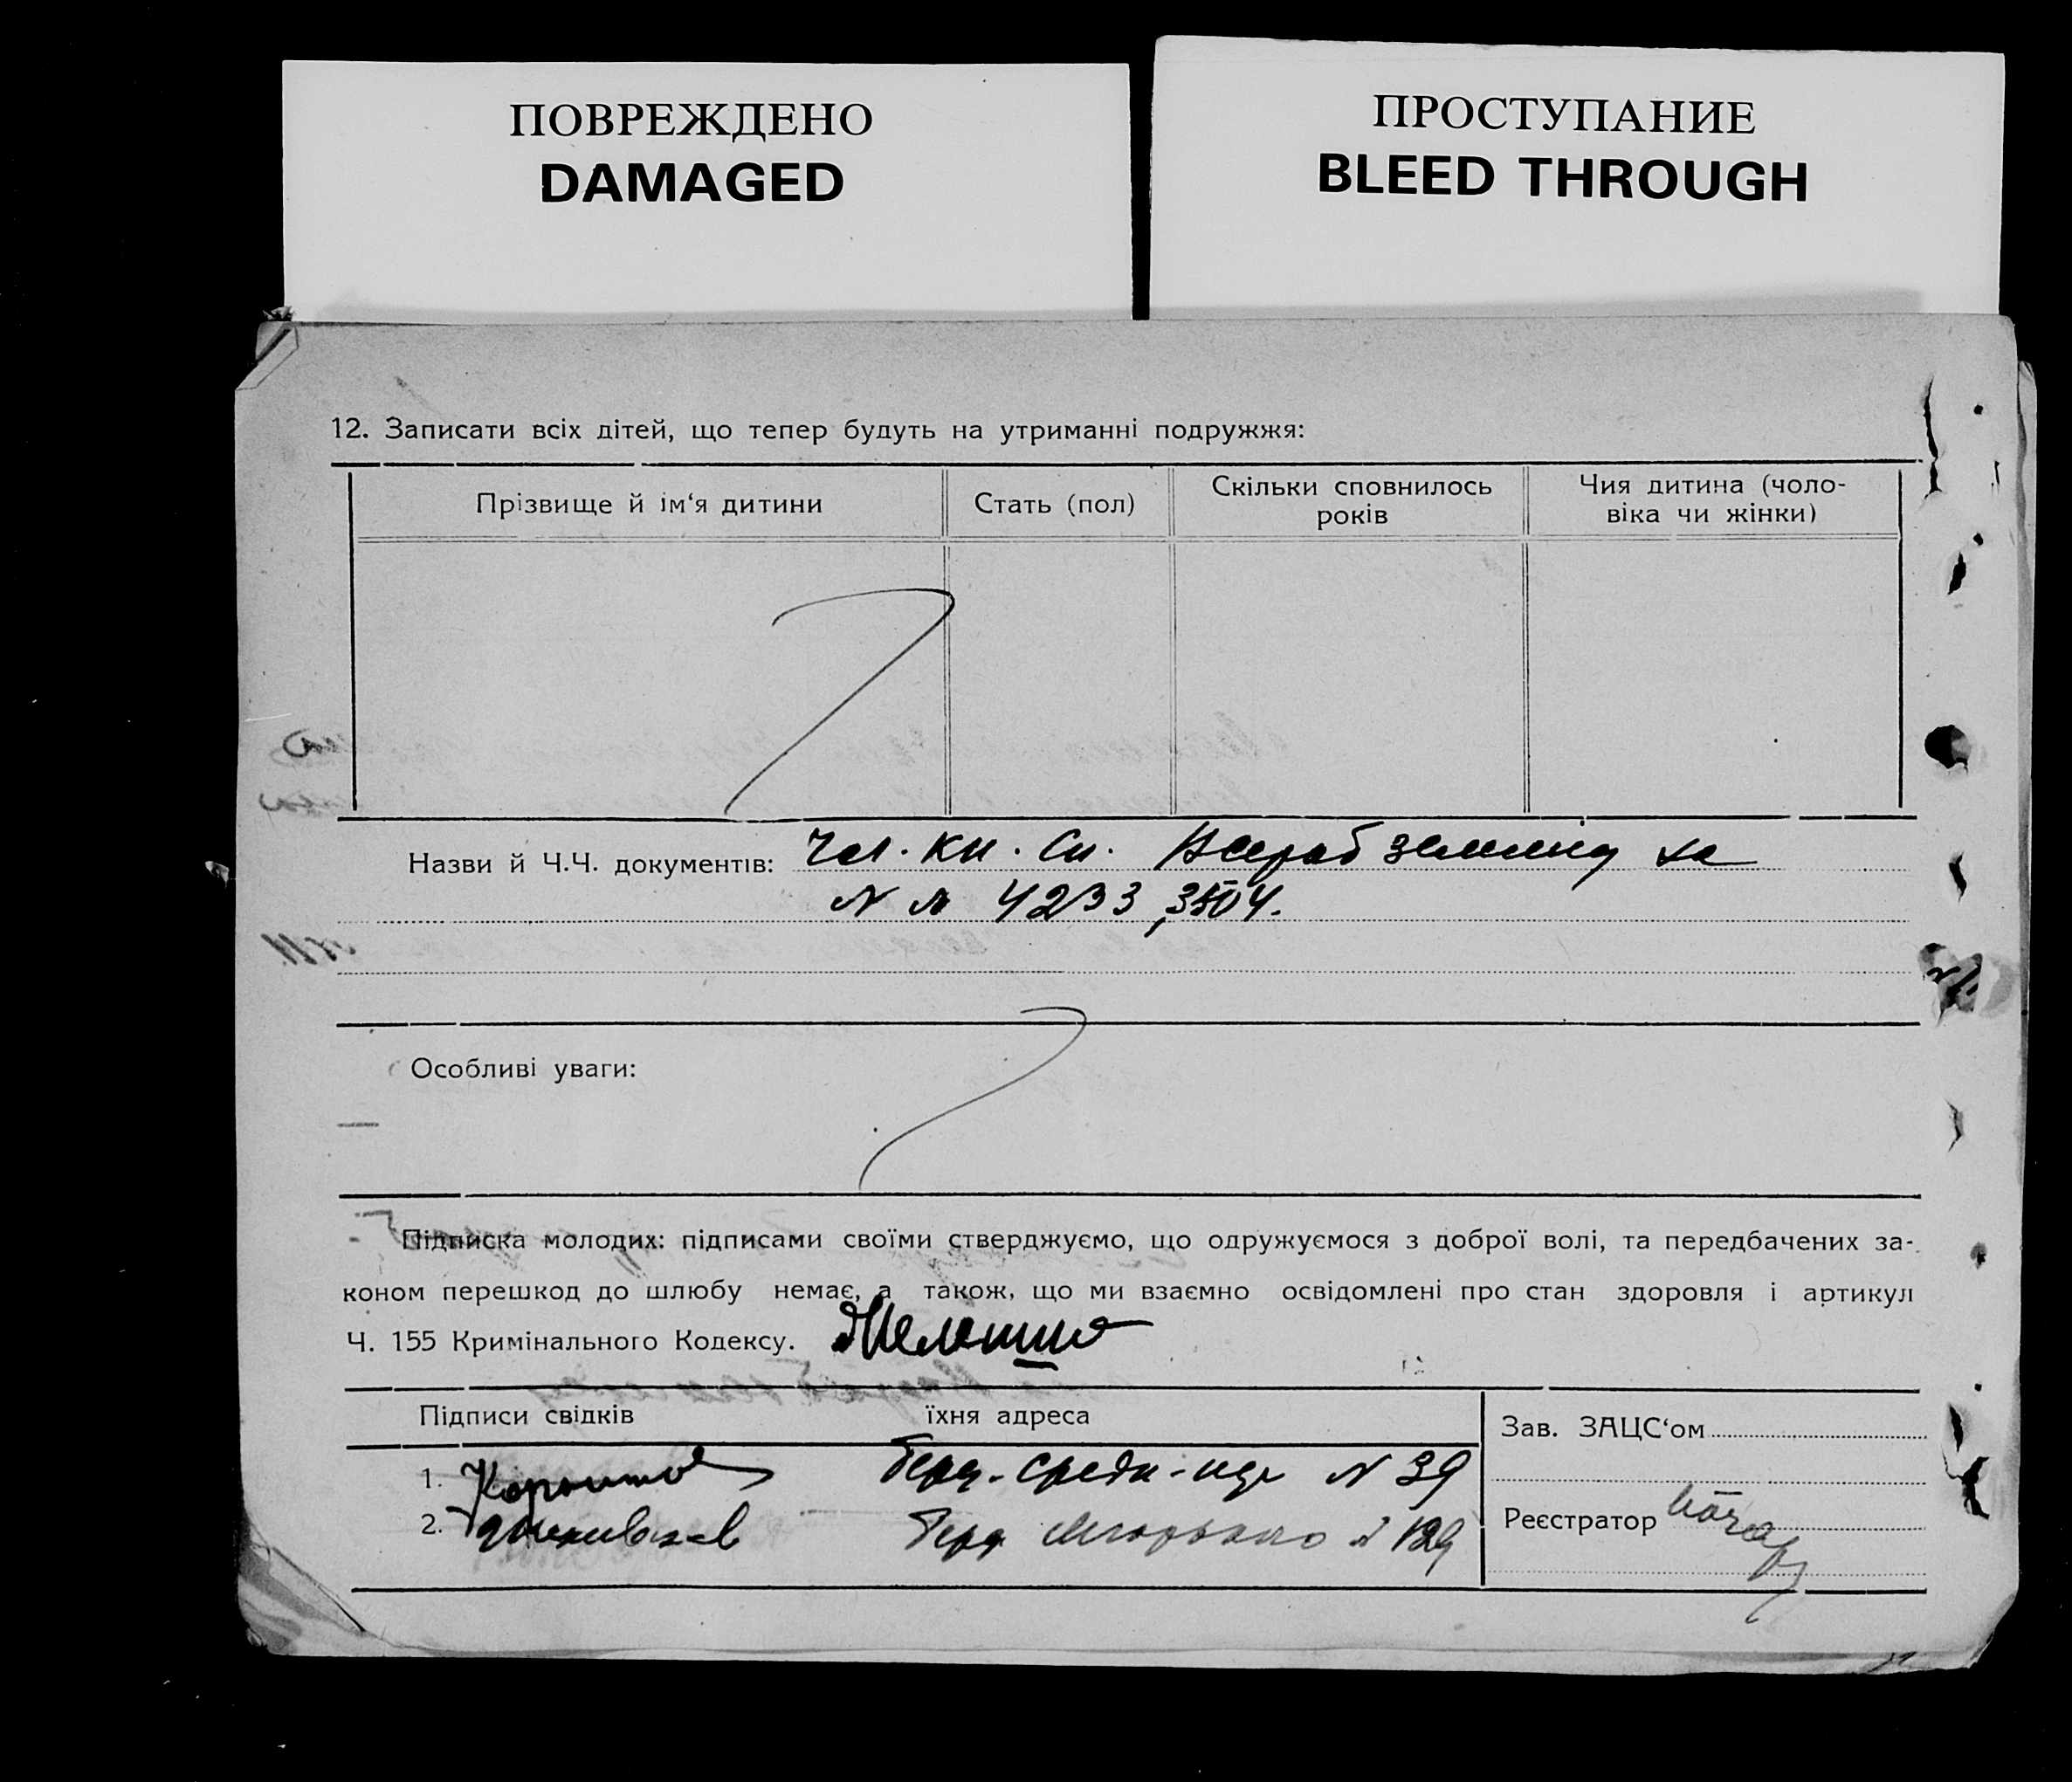 ПОВРЕЖДЕНО
DAMAGED
ПРОСТУПАНИЕ
BLEED THROUGH
12. Записати всіх дітей, що тепер будуть на утриманні подружжя:
Прізвище й ім‘я дитини
Стать (пол)
Скільки сповнилось
років
Чия дитина (чоло-
віка чи жінки)
Назви й Ч.Ч. документів: Чл. кн. Сп. за
N N 4233, 3504.
Особливі уваги:
Підписка молодих: підписами своїми стверджуємо, що одружуємося з доброї волі, та передбачених за-
коном перешкод до шлюбу немає, а також, що ми взаємно освідомлені про стан здоровля і артикул
Ч. 155 Кримінального Кодексу.
Підписи свідків
їхня адреса
1. N 39
2. 129
Зав. ЗАЦС‘ом
Реєстратор